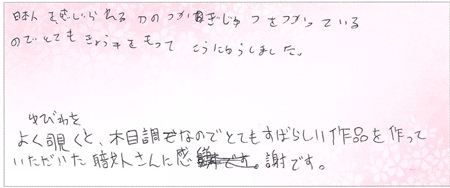 日本人を感じられる刀のつかまきぎじゅつをつかっている
のでとてもきょうみをもってこうにゅうしました。
ゆびわを
よく覗くと、木目調なのでとてもすばらしい作品を作って
いただいた職人さんに感謝です。